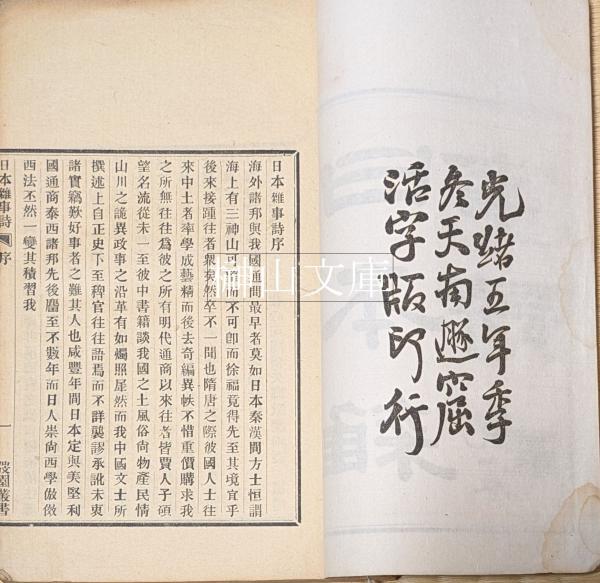 光緒五年季
冬天南遯窟
活字版印行
日本雜事詩序
海外諸邦與我國通問最早者莫如日本秦漢間方士恒謂
海上有三神山可望而不可卽而徐福竟得先至其境宜乎
後來接踵往者衆矣然卒不一聞也隋唐之際彼國人士往
來中土者率學成藝精而後去奇編異帙不惜重價購求我
之所無往往爲彼之所有明代通商以來往者皆賈人子碩
望名流從未一至彼中書籍談我國之土風俗尙物產民情
山川之詭異政事之沿革有如燭照犀然而我中國文士所
撰述上自正史下至稗官往往語焉而不詳襲謬承訛未衷
諸實竊歎好事者之難其人也咸豐年間日本定與美堅利
國通商泰西諸邦先後麕至不數年而日人崇尙西學倣傚
西法丕然一變其積習我
日本雜事詩
序
一
弢園叢書
神山文庫